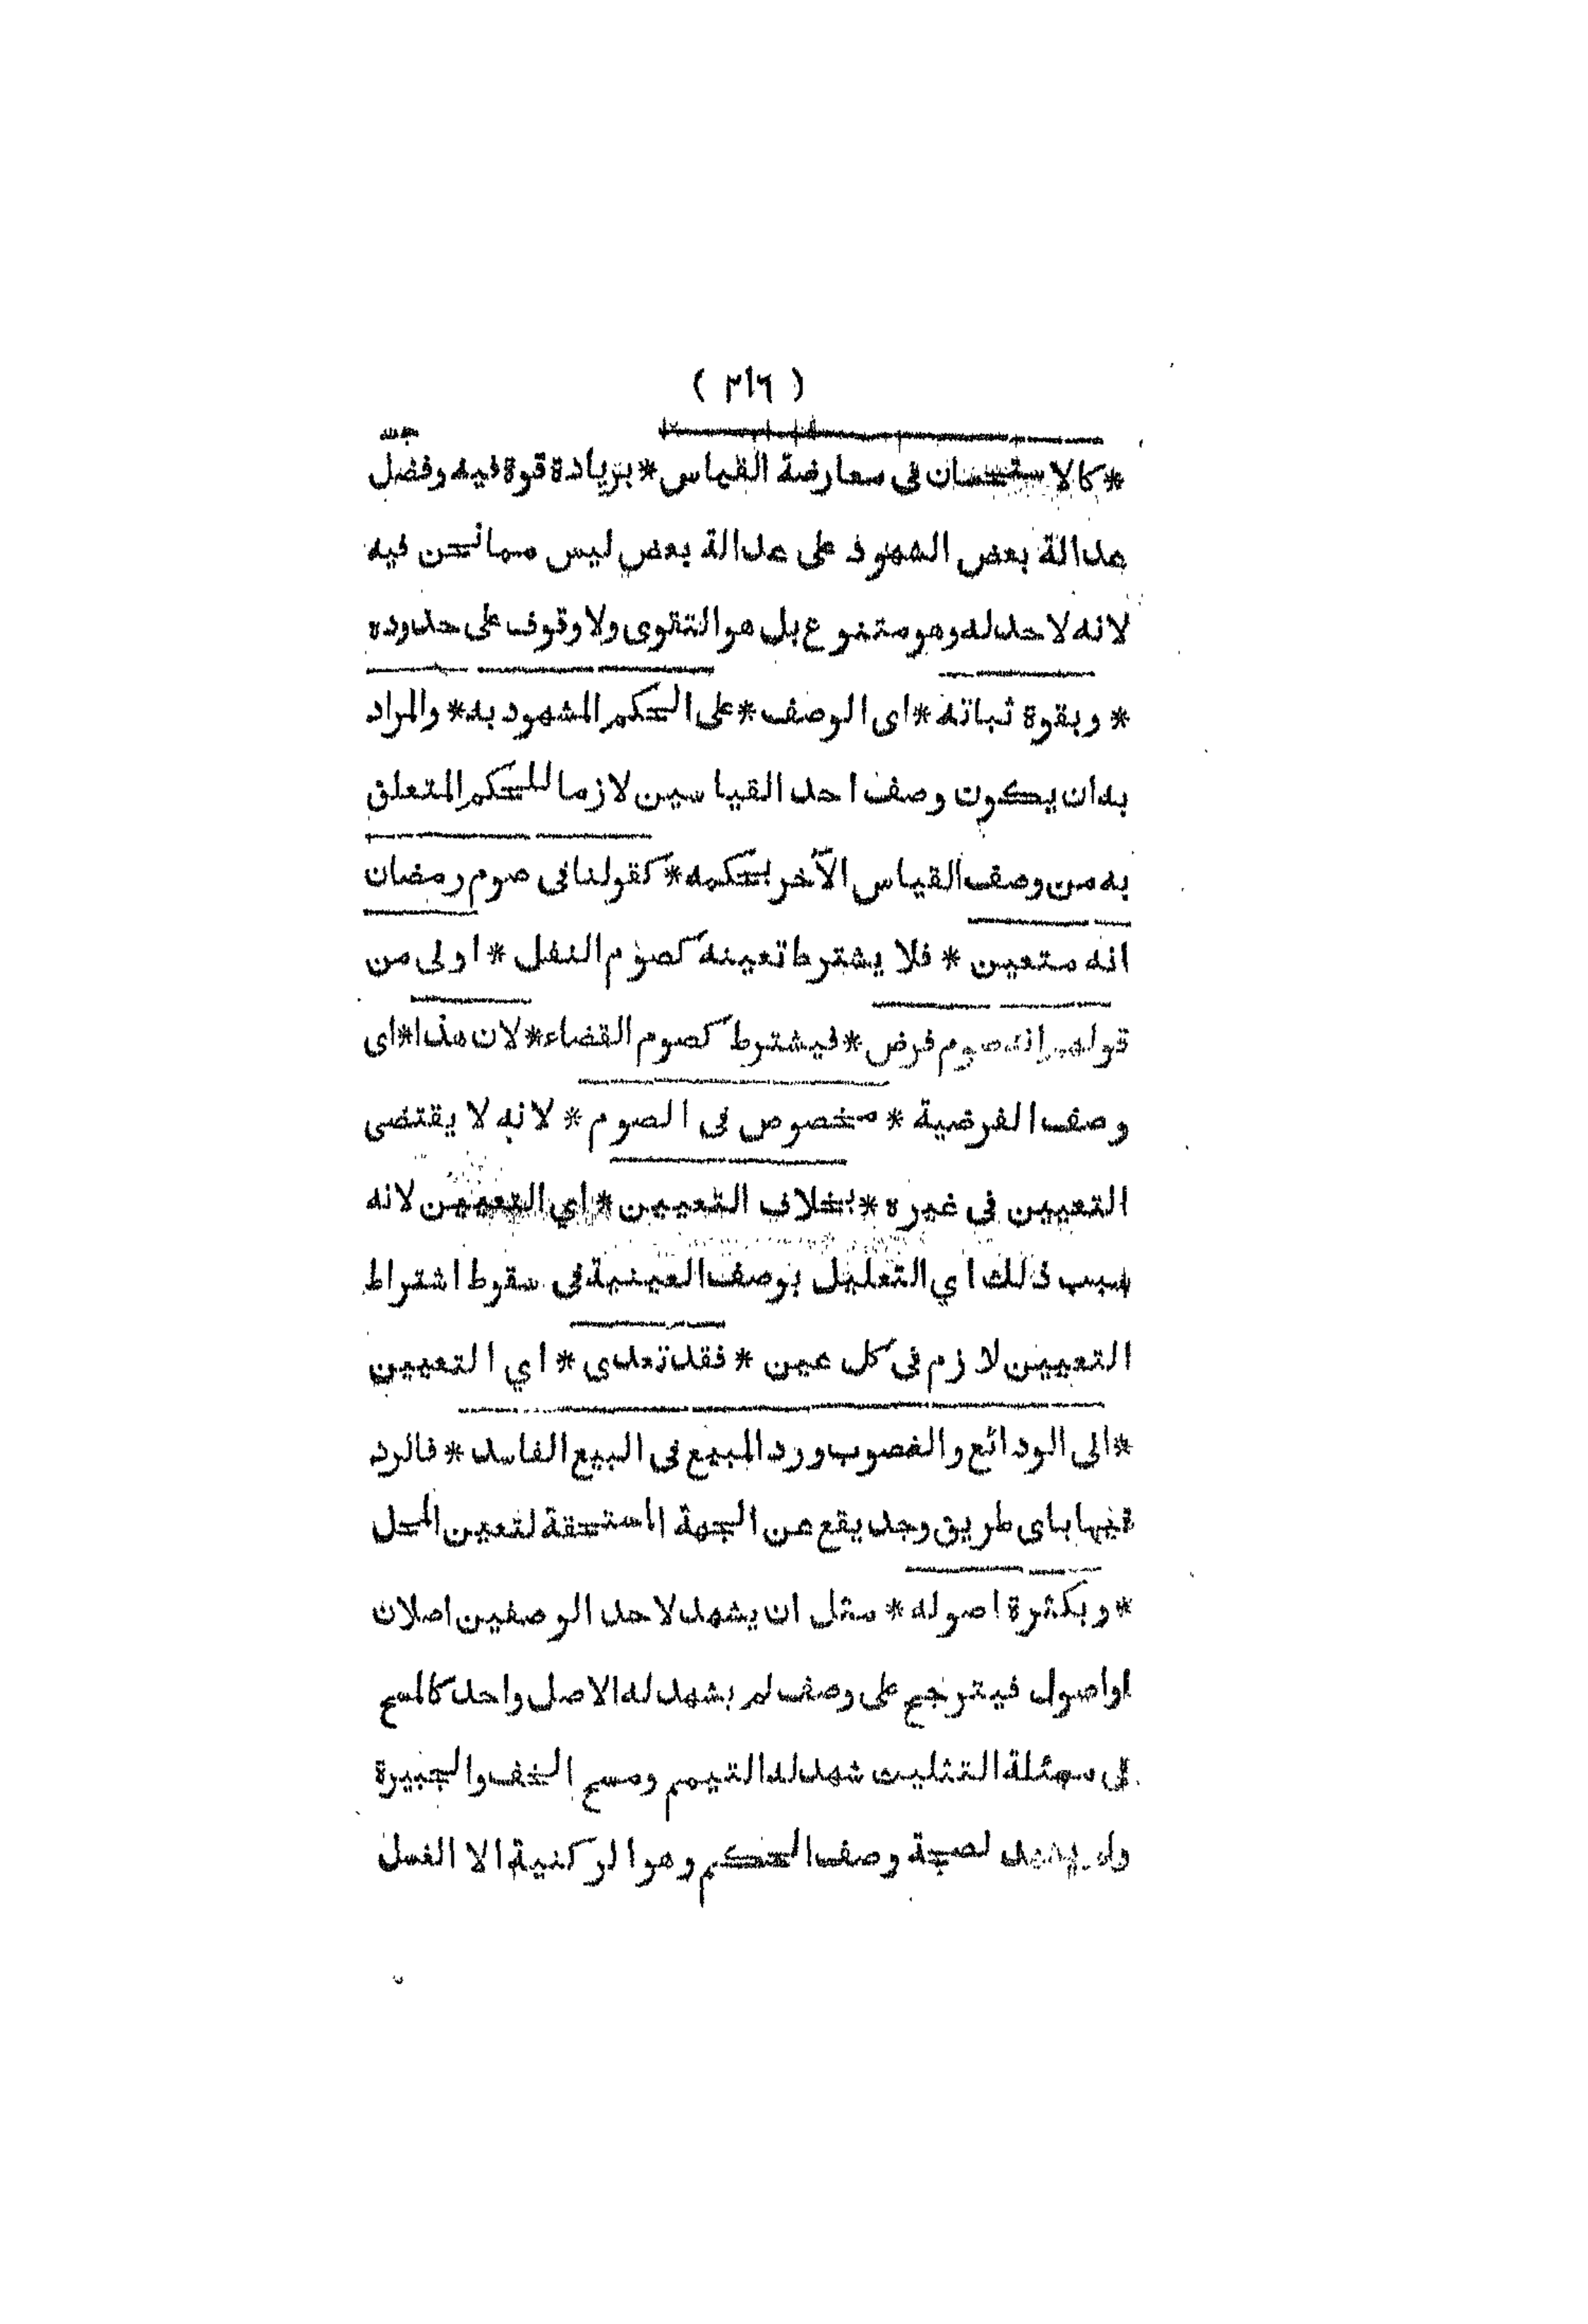 ( ٣١٦ )
*كالاستحسان فى معارضة القياس* بزيادة قوة فيه وفضل
عدالة بعض الشهود على عدالة بعض ليس مما نحن فيه
لانه لا حد له وهو متنوع بل هو التقوى ولا وقوف على حدوده
* وبقوة ثباته *اى الوصف *على الحكم المشهود به* والمراد
به ان يكون وصف احد القياسين لازما للحكم المتعلق
به من وصف القياس الآخر بحكمه* كقولنا فى صوم رمضان
انه متعين * فلا يشترط تعينه كصوم النفل * اولى من
قولهم انه صوم فرض *فيشترط كصوم القضاء* لان هذا *اى
وصف الفرضية * مخصوص فى الصوم * لانه لا يقتضى
التعيين فى غيره *بخلاف التعيين *اي التعيين لانه
سبب ذلك اي التعليل بوصف العينية فى سقوط اشتراط
التعيين لازم فى كل عين * فقد تعدى * اي التعيين
*الى الودائع والغصوب ورد المبيع فى البيع الفاسد * فالرد
فيها باى طريق وجد يقع عن الجهة المستحقة لتعين المحل
*وبكثرة اصوله * مثل ان يشهد لاحد الوصفين اصلان
او اصول فيترجح على وصف لم يشهد له الاصل واحد كالمسح
فى مسئلة التثليث شهد له التيمم ومسح الخف والجبيرة
ولم يشهد لصحة وصف الحكم وهو الركنية الا الغسل